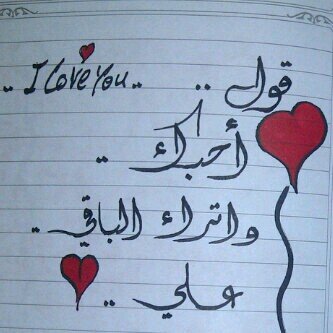 قول .. I Love You ..
أحبك ..
واترك الباقي ..
علي ..